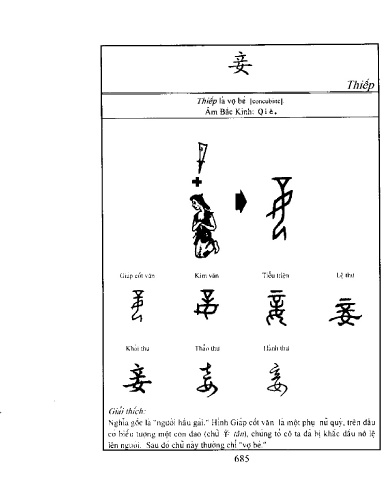 妾
Thiếp
Thiếp là vợ bé [concubine]
Âm Bắc Kinh: Qiè.
Giáp cốt văn Kim văn Tiểu triện Lệ thư
Khải thư Thảo thư Hành thư
妾 妾 妾
Giải thích:
Nghĩa gốc là "người hầu gái." Hình Giáp cốt văn là một phụ nữ quỳ, trên đầu
có biểu tượng một con dao (chữ 辛 tân), chứng tỏ cô ta đã bị khắc dấu nô lệ
lên người. Sau đó chữ này thường chỉ "vợ bé."
685